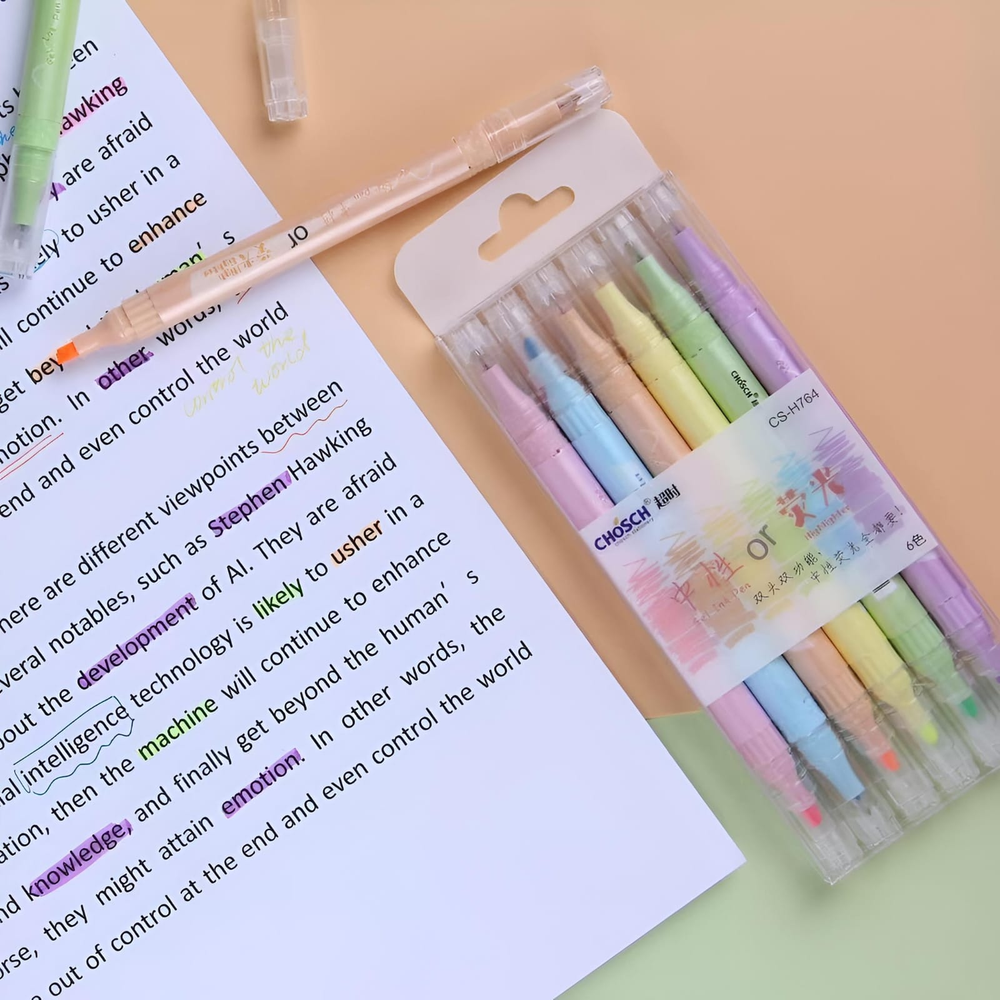 een
awking
are afraid
ely to usher in a
ill continue to enhance
human's
get bey
In other words,
motion.
end and even control the world
control the
world
here are different viewpoints between
everal notables, such as Stephen Hawking
bout the development of AI. They are afraid
ial intelligence technology is likely to usher in a
ation, then the machine will continue to enhance
nd knowledge, and finally get beyond the human's
orse, they might attain emotion. In other words, the
e out of control at the end and even control the world
or
CHOSCH
CS-H764
CHOSCH® 超时
中性 or 荧光
Highlighter
双头双功能,
中性荧光全都要!
6色